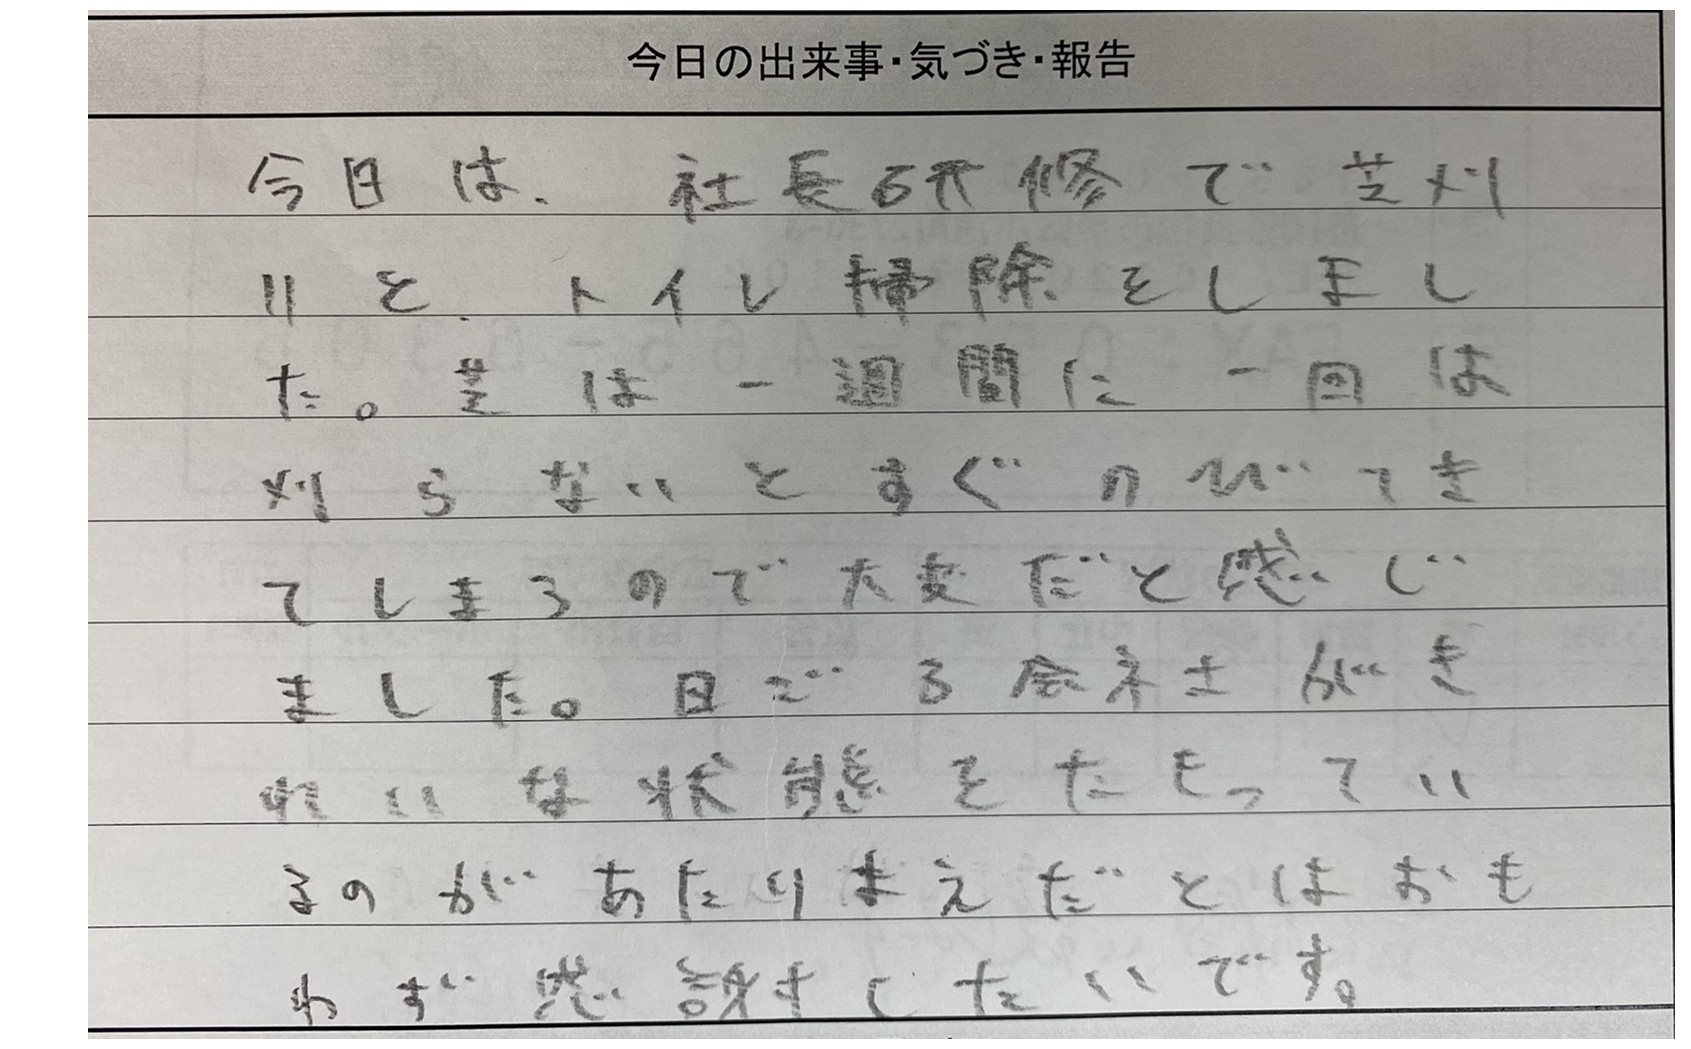 今日の出来事・気づき・報告
今日は、社長研修で芝刈
りと、トイレ掃除をしまし
た。芝は一週間に一回は
刈らないとすぐのびてき
てしまうので大変だと感じ
ました。日ごろ会社さがき
れいな状態をたもってい
るのがあたりまえだとはおも
わず感謝さしたいです。